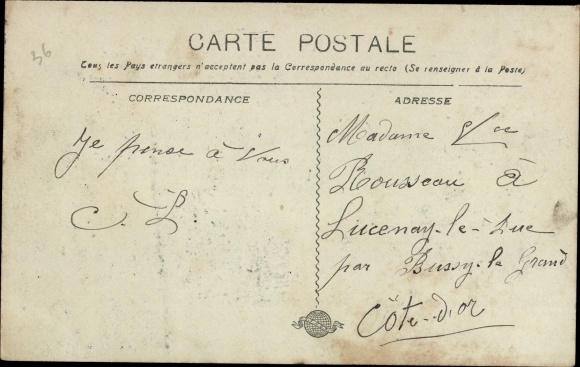 36
CARTE POSTALE
Tous les Pays etrangers n'acceptent pas la Correspondance au recto (Se renseigner à la Poste)
CORRESPONDANCE
Je pense à Vous
C. L
ADRESSE
Madame Vve
Rousseau à
Lucenay-le-Duc
par Bussy-le Grand
Côte-d'or